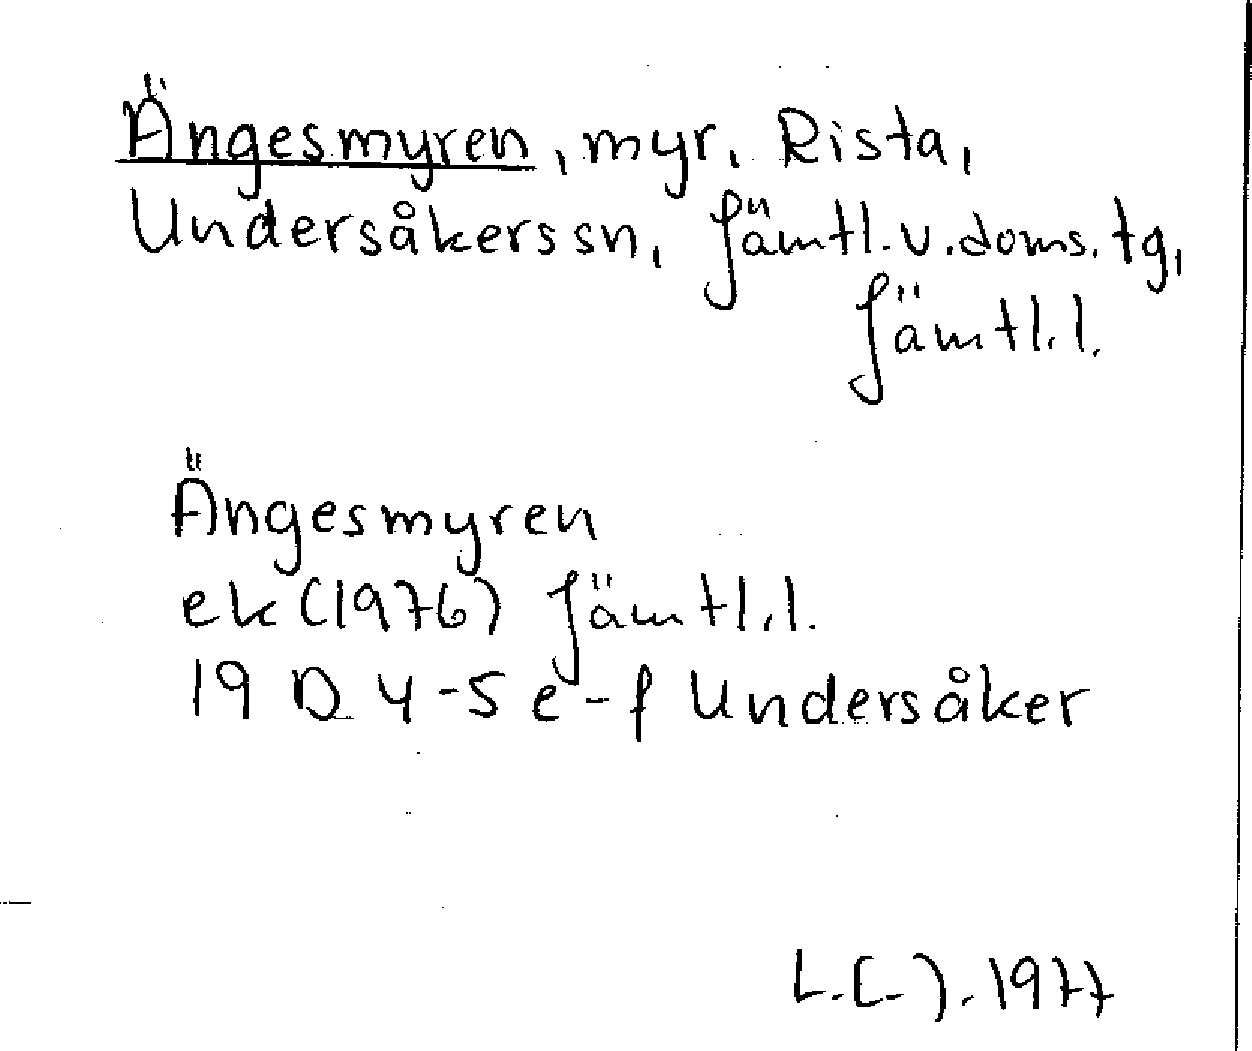 Ängesmyren, myr, Rista,
Undersåkers sn, Jämtl. v. doms. tg,
Jämtl. l.
Ängesmyren
ek (1976) Jämtl. l.
19 D 4-5 e-f Undersåker
1977